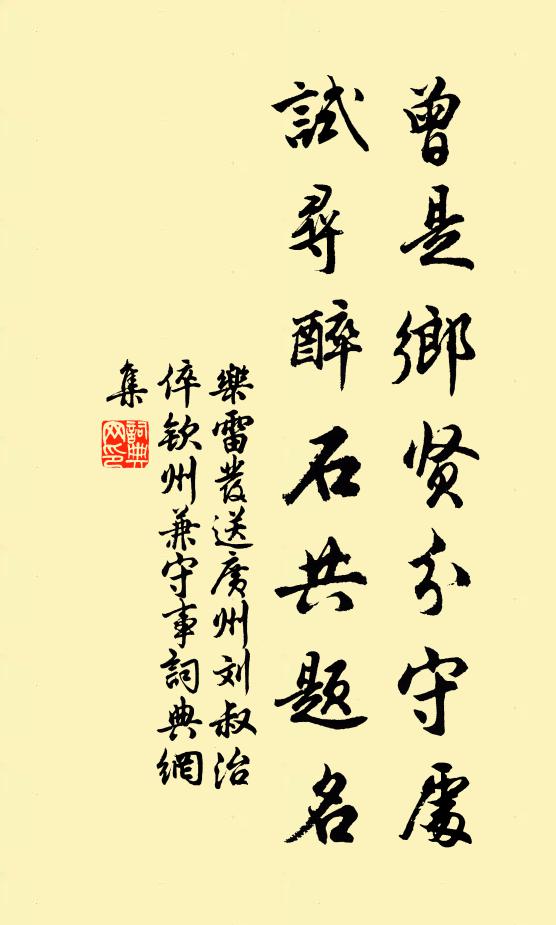 曾是鄉贤分守處
試尋醉石共題名
樂雷發送廣州刘叔治
倅欽州兼守事詞典網
集
詞典网印